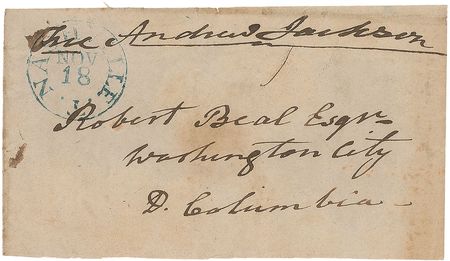 Free Andrew Jackson
NASHVILLE T.
NOV
18
Robert Beal Esqr
Washington City
D. Columbia